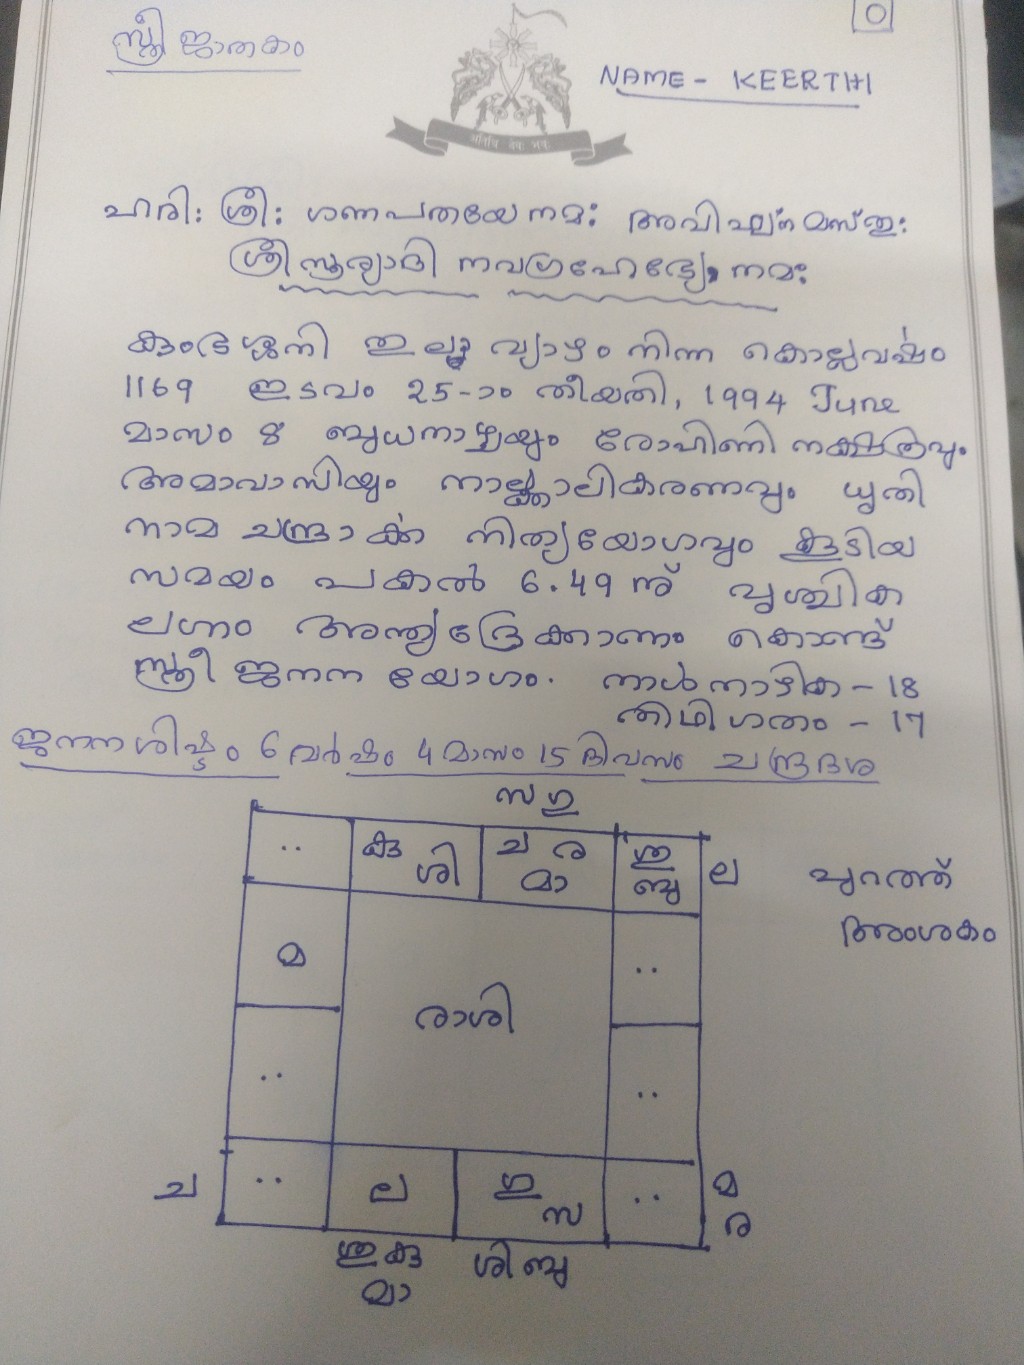 സ്ത്രീ ജാതകം
NAME - KEERTHI
अतिथि देवः भव
ഹരി: ശ്രീ: ഗണപതയേ നമ: അവിഘ്ന മസ്തു:
ശ്രീ സൂര്യാദി നവഗ്രഹേഭ്യോ നമഃ
കുംഭശ്ശനി തുലാ വ്യാഴം നിന്ന കൊല്ലവർഷം
1169 ഇടവം 25-ാം തീയതി, 1994 June
മാസം 8 ബുധനാഴ്ചയും രോഹിണി നക്ഷത്രവും
അമാവാസിയും നാല്ക്കാലികരണവും ധൃതി
നാമ ചന്ദ്രാർക്ക നിത്യയോഗവും കൂടിയ
സമയം പകൽ 6.49 ന് വൃശ്ചിക
ലഗ്നം അന്ത്യദ്രേക്കാണം കൊണ്ട്
സ്ത്രീ ജനന യോഗം. നാൾ നാഴിക - 18
തിഥി ഗതം - 17
ജനനശിഷ്ടം 6 വർഷം 4 മാസം 15 ദിവസം ചന്ദ്രദശ
സ ഗു
.. കു ശി ച ര മാ ശു ബു ല
പുറത്ത്
അംശകം
മ ..
രാശി
.. ..
ച .. ല ഗു സ .. മ
ര
ശു കു ശി ബു
മാ